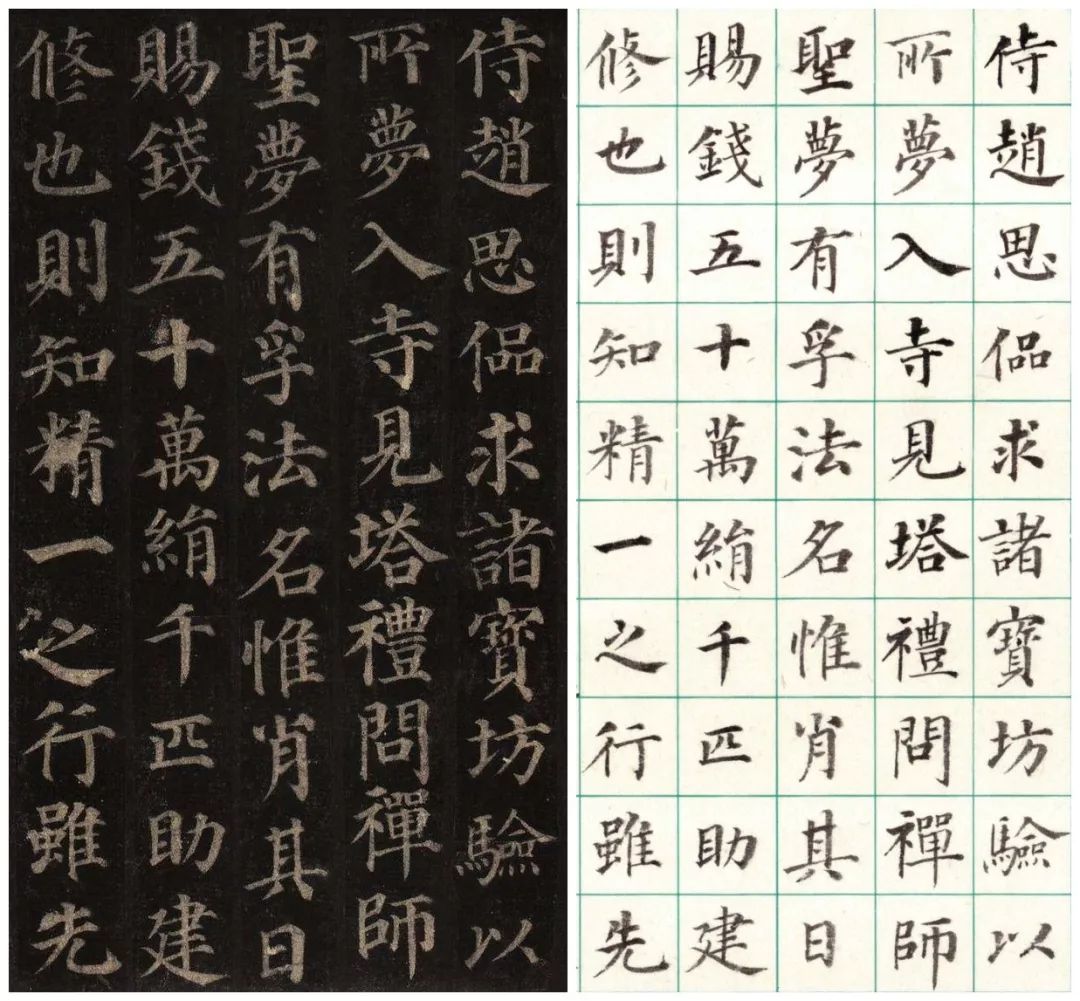 侍趙思偘求諸寶坊驗以
所夢入寺見塔禮問禪師
聖夢有孚法名惟肖其日
賜錢五十萬絹千匹助建
修也則知精一之行雖先
侍趙思偘求諸寶坊驗以
所夢入寺見塔禮問禪師
聖夢有孚法名惟肖其日
賜錢五十萬絹千匹助建
修也則知精一之行雖先